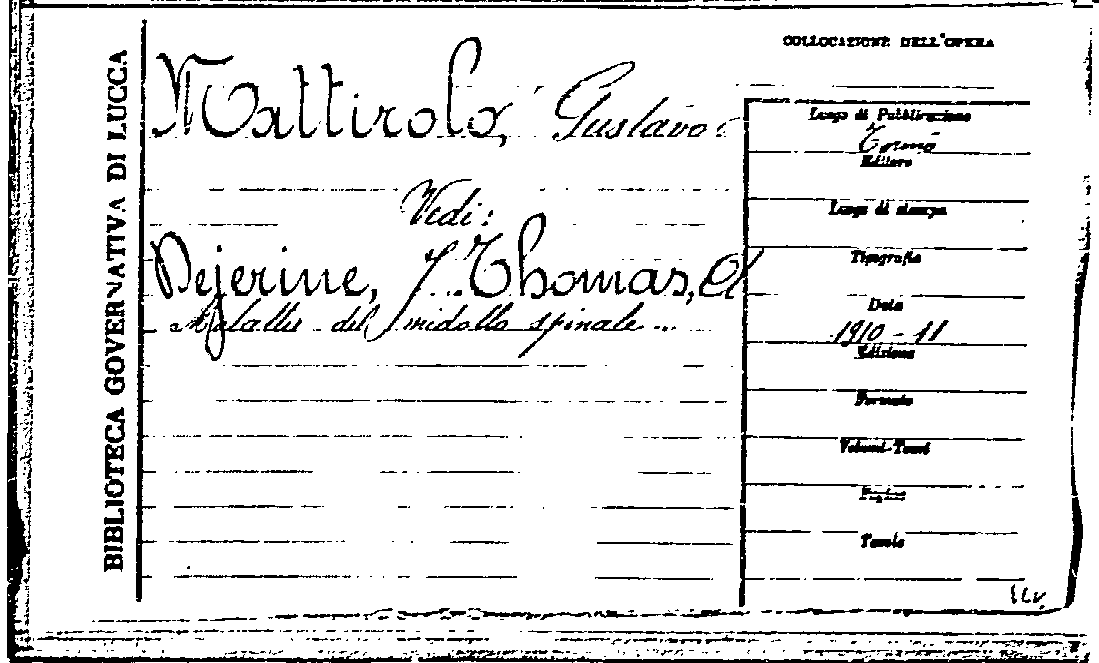 BIBLIOTECA GOVERNATIVA DI LUCCA
COLLOCAZIONE DELL'OPERA
Mattirolo, Gustavo
Vedi:
Dejerine, J. Thomas, A
Malattie del midollo spinale...
Luogo di Pubblicazione
Torino
Editore
Luogo di stampa
Tipografia
Data
1910-11
Edizione
Formato
Volumi-Tomi
Pagine
Tavole